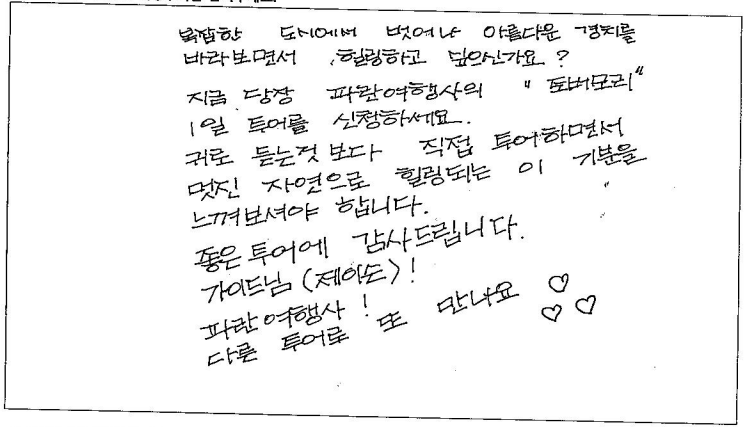 복잡한 도시에서 벗어나 아름다운 경치를
바라보면서 힐링하고 싶으신가요?
지금 당장 파란여행사의 "토버모리"
1일 투어를 신청하세요.
귀로 듣는것 보다 직접 투어하면서
멋진 자연으로 힐링되는 이 기분을
느껴보셔야 합니다.
좋은 투어에 감사드립니다.
가이드님 (제이슨)!
파란여행사!
다른 투어로 또 만나요 ♡
♡♡